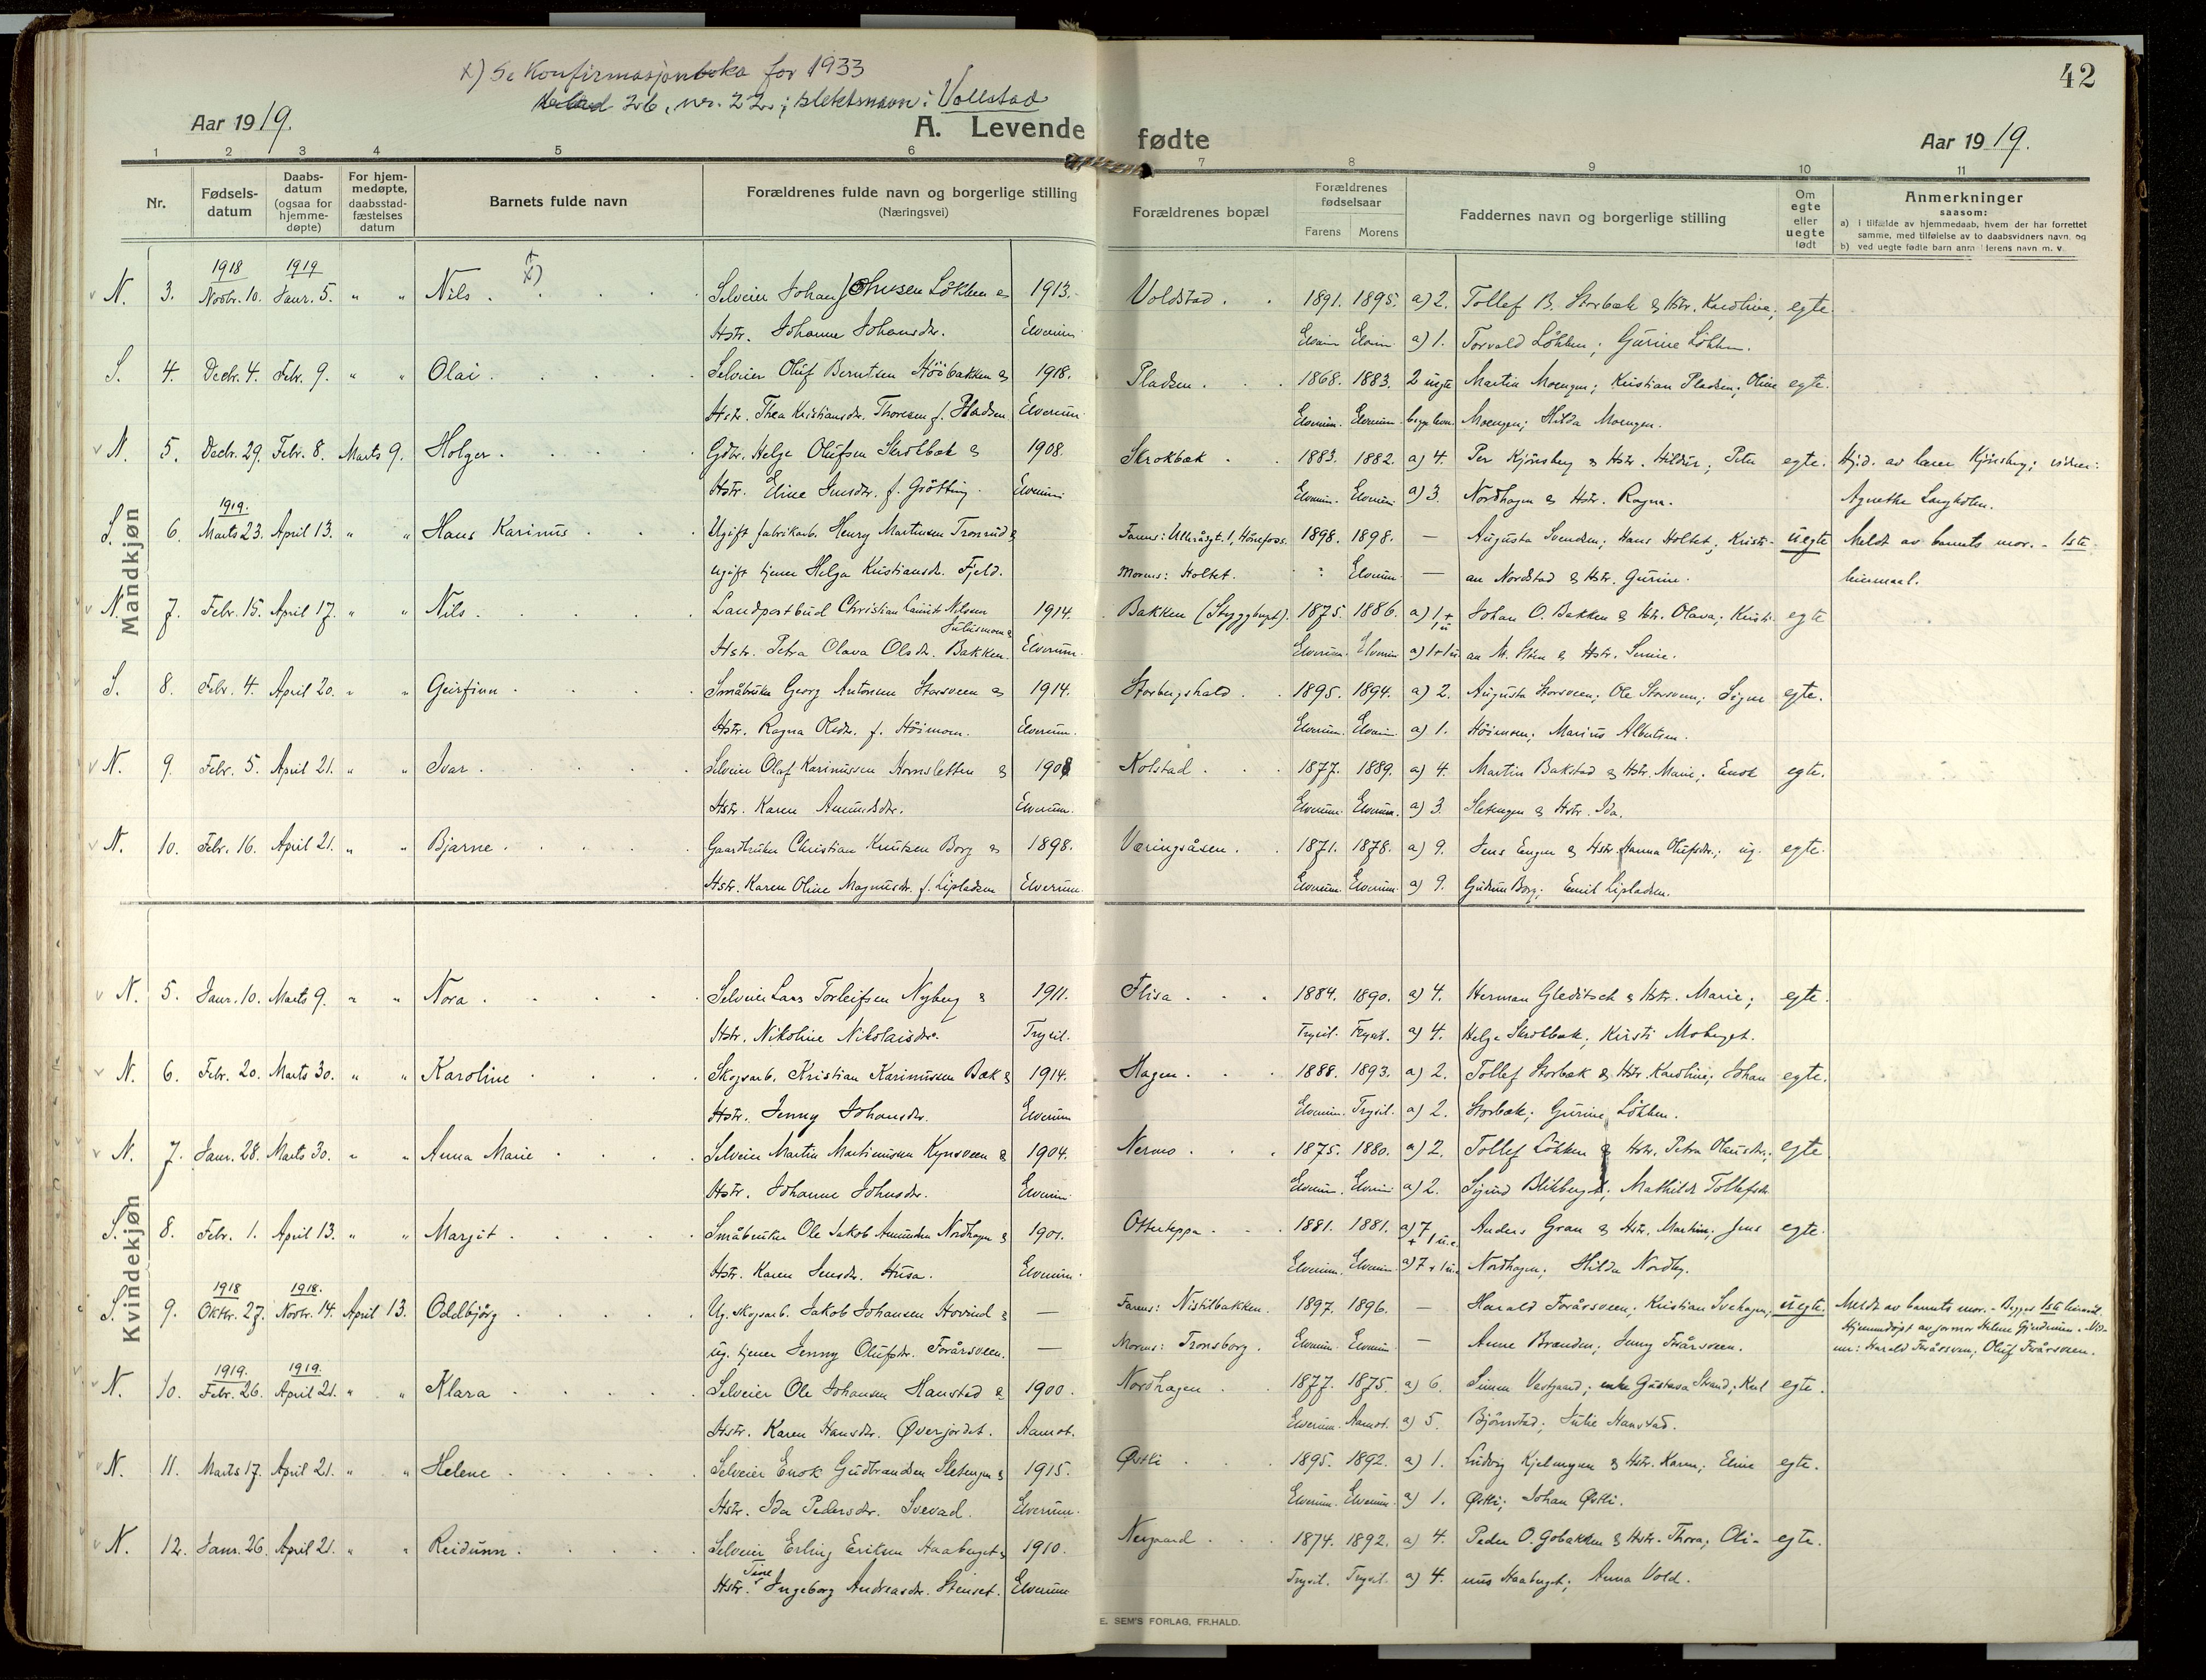 x) Se Konfirmasjonboka for 1933
nr. 22; slektsnavn: Vollstad
42
Aar 1919.
A. Levende fødte
Aar 1919.
1 2 3 4 5 6 7 8 9 10 11
Nr.
Fødselsdatum
Daabsdatum (ogsaa for hjemmedøpte)
For hjemmedøpte, daabsstadfæstelses datum
Barnets fulde navn
Forældrenes fulde navn og borgerlige stilling (Næringsvei)
Forældrenes bopæl
Forældrenes fødselsaar
Farens Morens
Faddernes navn og borgerlige stilling
Om egte eller uegte født
Anmerkninger
saasom:
a) i tilfælde av hjemmedaab, hvem der har forrettet samme, med tilføielse av to daabsvidners navn, og
b) ved uegte fødte barn anm
Mandkjøn
1918 1919 x)
N. 3. Novbr. 10. Janr. 5. " " Nils. Selveier Johan Løkken & 1913. Voldstad. 1891. 1895. a) 2. Tollef B. Storbæk & Hstr. Karoline; egte.
Hstr. Johanne Johansdr. Elverum Elverum Elverum a) 1. Torvald Løkken; Gurine Løkken.
S. 4. Decbr. 4. Febr. 9. " " Olai. Selveier Oluf Berntsen Höibakken & 1918. Pladsen. 1868. 1883. 2 uegte Martin Moengen; Kristian Pladsen; Oline egte.
Hstr. Thea Kristiansdr. Thoresen f. Pladsen. Elverum. Elverum. Elverum Moengen; Hilda Moengen.
N. 5. Decbr. 29. Febr. 8. Marts 9. Holger. Gdbr. Helge Olufsen Skrokbæk & 1908. Skrokbæk. 1883. 1882. a) 4. Per Kjönsberg & Hstr. Hildur; Peter egte. Hj.d. av lærer Kjönsberg; vidner:
Hstr. Eline Jensdr. f. Grötting. Elverum Elverum. Elverum a) 3. Nordhagen & Hstr. Ragna. Agnethe Langholen.
1919.
S. 6. Marts 23. April 13. " " Hans Karinus. Ugift fabrikarb. Henry Martinsen Tronrud & Farens: 1, Hönefoss. 1898. 1898. — Augusta Svendsen; Hans Holtet; Kristi- uegte Meldt av barnets mor. - 1ste
ugift tjener Helga Kristiansdr. Fjeld. Morens: Holtet. Elverum — an Nordstad & Hstr. Gurine. leiermaal.
N. 7. Febr. 15. April 17. " " Nils. Landpostbud Christian Nilsen 1914. Bakken (Styggberget). 1875. 1886. a) 1 + Johan O. Bakken & Hstr. Olava; Kristi- egte
Julusmoen &
Hstr. Petra Olava Olsdr. Bakken. Elverum. Elverum. Elverum a) 1 + 1u. an M. & Hstr.
S. 8. Febr. 4. April 20. " " Geirfinn. Småbruker Georg Antonsen Storsveen & 1914. Storbergshald. 1895. 1894. a) 2. Augusta Storsveen; Ole Storsveen; Signe egte.
Hstr. Ragna Olsdr. f. Höimoen. Elverum. Elverum. Elverum a) 1. Höimoen; Marius Albertsen.
N. 9. Febr. 5. April 21. " " Ivar. Selveier Olaf Karinussen Hornsletten & 1908 Kolstad. 1877. 1889. a) 4. Martin Bakstad & Hstr. Marie; Enok egte.
Hstr. Karen Amundsdr. Elverum. Elverum. Elverum. a) 3. Sletengen & Hstr. Ida.
N. 10. Febr. 16. April 21. " " Bjarne. Gaardbruker Christian Knutsen Borg & 1898. Væringsåsen. 1871. 1878. a) 9. Jens Engen & Hstr. Hanna Olufsdr.; ug. egte.
Hstr. Karen Oline Magnusdr. f. Lipladsen Elverum. Elverum. Elverum. a) 9. Gudrun Borg; Emil Lipladsen.
Kvindekjøn
N. 5. Janr. 10. Marts 9. " " Nora. Selveier Lars Torleifsen Nyberg & 1911. Flisa. 1884. 1890. a) 4. Herman Gleditsch & Hstr. Marie; egte.
Hstr. Nikoline Nikolaisdr. Trysil. Trysil. Trysil. a) 4. Helge Skrokbæk; Kirsti Moberget.
N. 6. Febr. 20. Marts 30. " " Karoline. Skogsarb. Kristian Karinussen Bæk & 1914. Hagen. 1888. 1893. a) 2. Tollef Storbæk & Hstr. Karoline; Johan egte.
Hstr. Jenny Johansdr. Elverum Elverum. Trysil. a) 2. Storbæk; Gurine Løkken.
N. 7. Janr. 28. Marts 30. " " Anna Marie. Selveier Martin Martinusen Kynsveen & 1904. Nermo. 1875. 1880. a) 2. Tollef Løkken & Hstr. Petra Olausdr.; egte
Hstr. Johanne Johnsdr. Elverum Elverum. Elverum a) 2. Sigurd Blikberget; Mathilde Tollefsdr.
S. 8. Febr. 1. April 13. " " Margit. Småbruker Ole Jakob Amundsen Nordhagen & 1901. Otterteppa. 1881. 1881. a) 7 + 1 u.e. Anders Gran & Hstr. Martine; Jens egte.
Hstr. Karen Jensdr. Husa. Elverum. Elverum. Elverum a) 7 + 1u.e. Nordhagen; Hilda Nordby.
1918 1918.
S. 9. Oktbr. 27. Novbr. 14. April 13. Oddbjörg. Ug. skogsarb. Jakob Johansen Hovrud & — Farens: Nistilbakken. 1897. 1896. — Harald Forårsveen; Kristian Svehagen; uegte. Meldt av barnets mor. - Begges 1ste leiermål.
Hjemmedöpt av jormor Helene - Vid-
ug. tjener Jenny Olufsdr. Forårsveen. — Morens: Tronsborg. Elverum. Elverum — Anne Brænden; Jenny Forårsveen. ner: Harald Forårsveen; Oluf Forårsveen.
1919. 1919.
N. 10. Febr. 26. April 21. " " Klara. Selveier Ole Johansen Hanstad & 1900. Nordhagen. 1877. 1875. a) 6. Simen Vestgaard; enke Gustava Strand; Karl egte.
Hstr. Karen Hansdr. Øverjordet. Aamot. Elverum. Aamot. a) 5. Björnstad; Julie Hanstad.
N. 11. Marts 17. April 21. " " Helene. Selveier Enok Gudbrandsen Sletengen & 1915. Østli. 1895. 1892. a) 1. Ludvig & Hstr. Karen; Eline egte.
Hstr. Ida Pedersdr. Svevad. Elverum. Elverum. Elverum a) 1. Østli; Johan Østli.
N. 12. Janr. 26. April 21. " " Reidunn. Selveier Erling Eriksen Haaberget & 1910. Nergaard. 1874. 1892. a) 4. Peder O. Gobakken & Hstr. Thora; Oli- egte.
Tine
Hstr. Ingeborg Andreasdr. Stenset. Elverum Trysil. Trysil. a) 4. nus Haaberget; Anna Vold.
E. SEM'S FORLAG, FR.HALD.